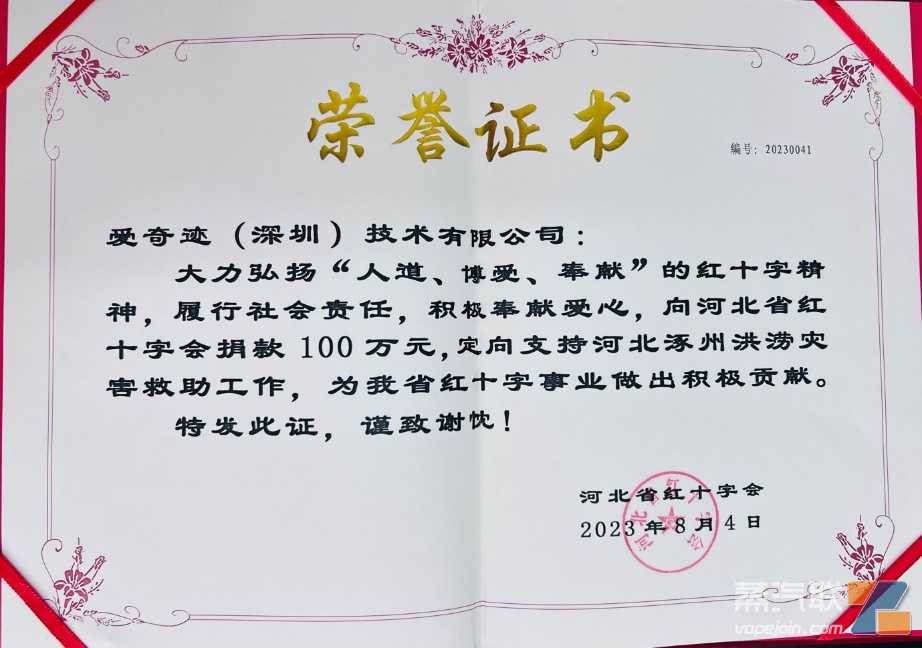 荣誉证书
编号：20230041
爱奇迹（深圳）技术有限公司：
大力弘扬“人道、博爱、奉献”的红十字精
神，履行社会责任，积极奉献爱心，向河北省红
十字会捐款 100 万元，定向支持河北涿州洪涝灾
害救助工作，为我省红十字事业做出积极贡献。
特发此证，谨致谢忱！
河北省红十字会
2023 年 8 月 4 日
河北省红十字会
蒸汽联
vapejoin.com